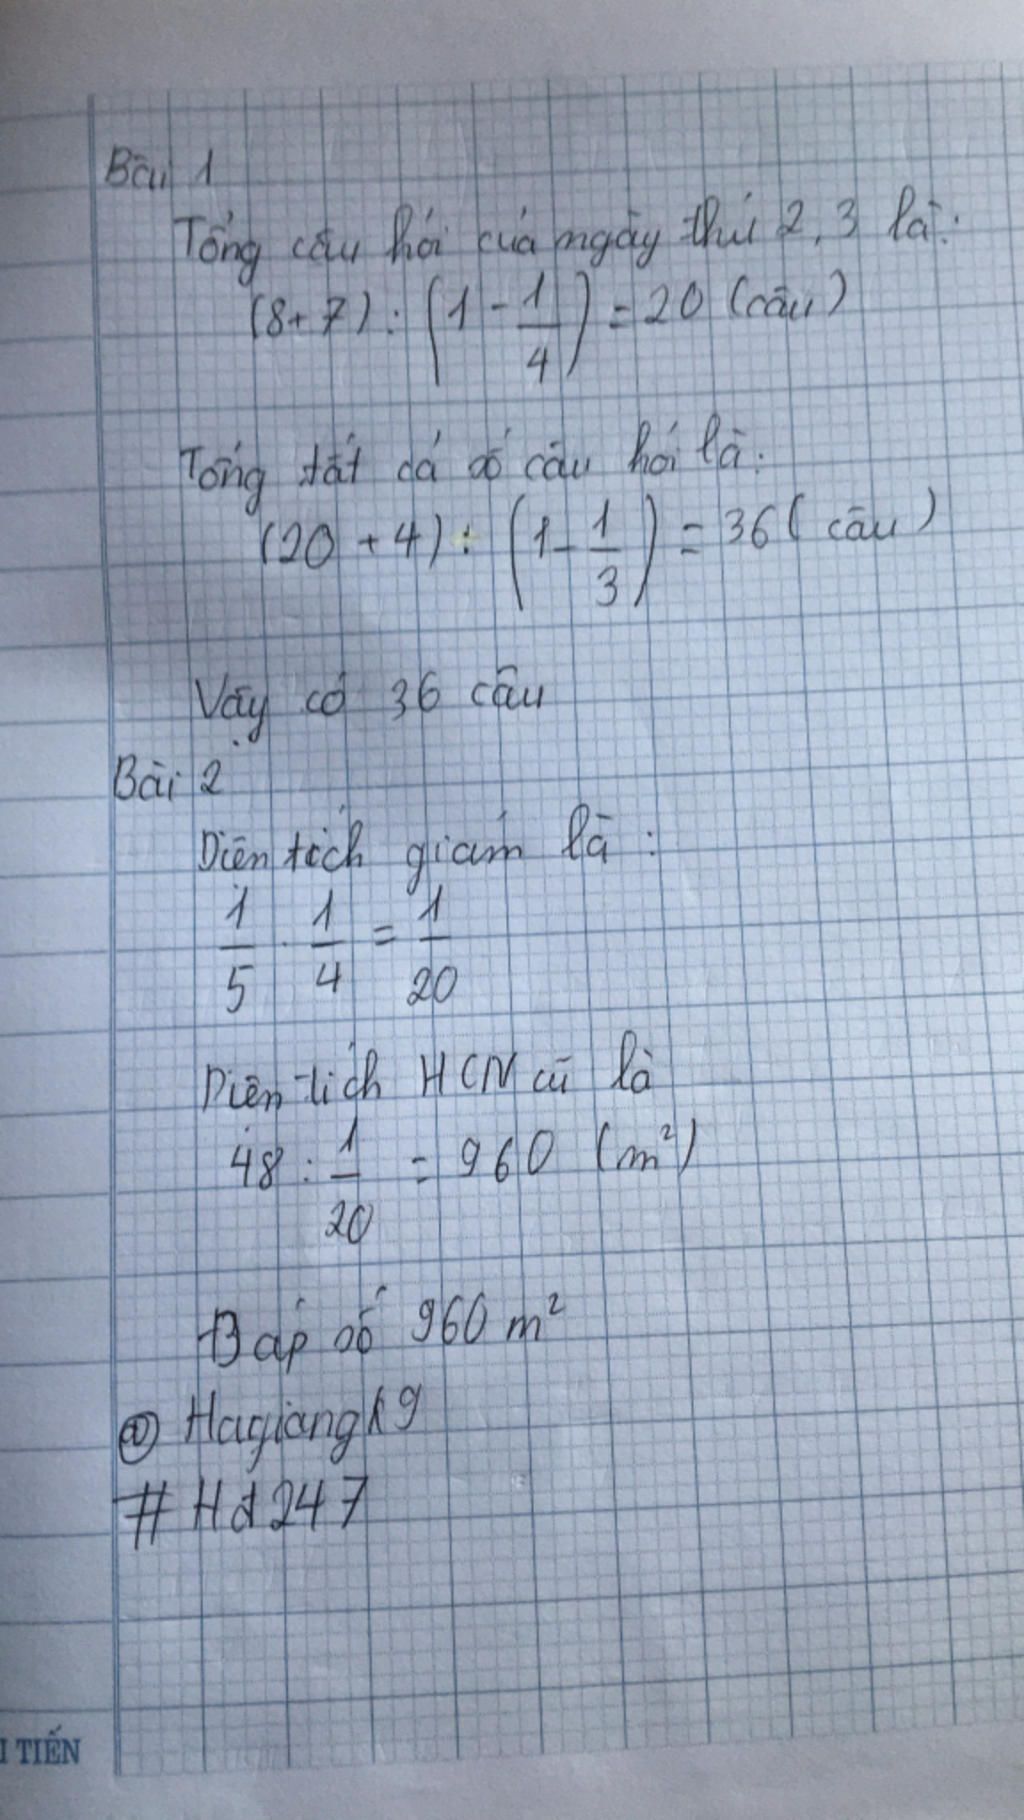 Bài 1
Tổng câu hỏi của ngày thứ 2, 3 là:
(8+7) : (1 - 1/4) = 20 (câu)
Tổng tất cả số câu hỏi là:
(20 + 4) : (1 - 1/3) = 36 (câu)
Vậy có 36 câu
Bài 2
Diện tích giảm là :
1/5 . 1/4 = 1/20
Diện tích HCN cũ là
48 : 1/20 = 960 (m²)
Đáp số 960 m²
@ Hagiangk9
# Hd247
I TIẾN